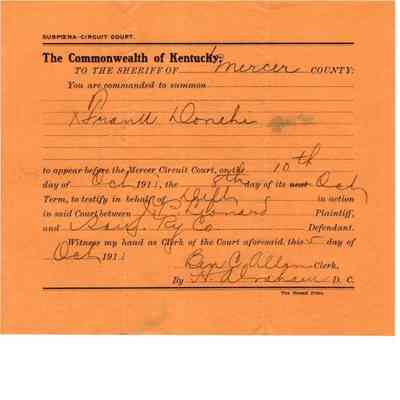 SUBPŒNA-CIRCUIT COURT.
The Commonwealth of Kentucky,
TO THE SHERIFF OF Mercer COUNTY:
You are commanded to summon
Frank
to appear before the Mercer Circuit Court, on the 10th
day of Oct 1911, the 8th day of its next Oct
Term, to testify in behalf of Plff in action
in said Court between Leonard Plaintiff,
and Sou. Ry Co Defendant.
Witness my hand as Clerk of the Court aforesaid, this 5 day of
Oct 1911
Ben C Allen Clerk,
By D. C.